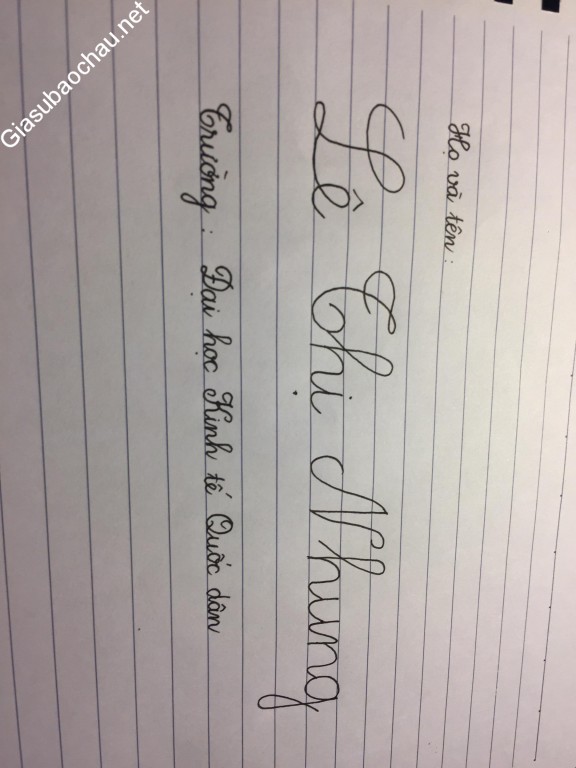 Họ và tên:
Lê Thị Nhung
Trường: Đại học Kinh tế Quốc dân
Giasubaochau.net